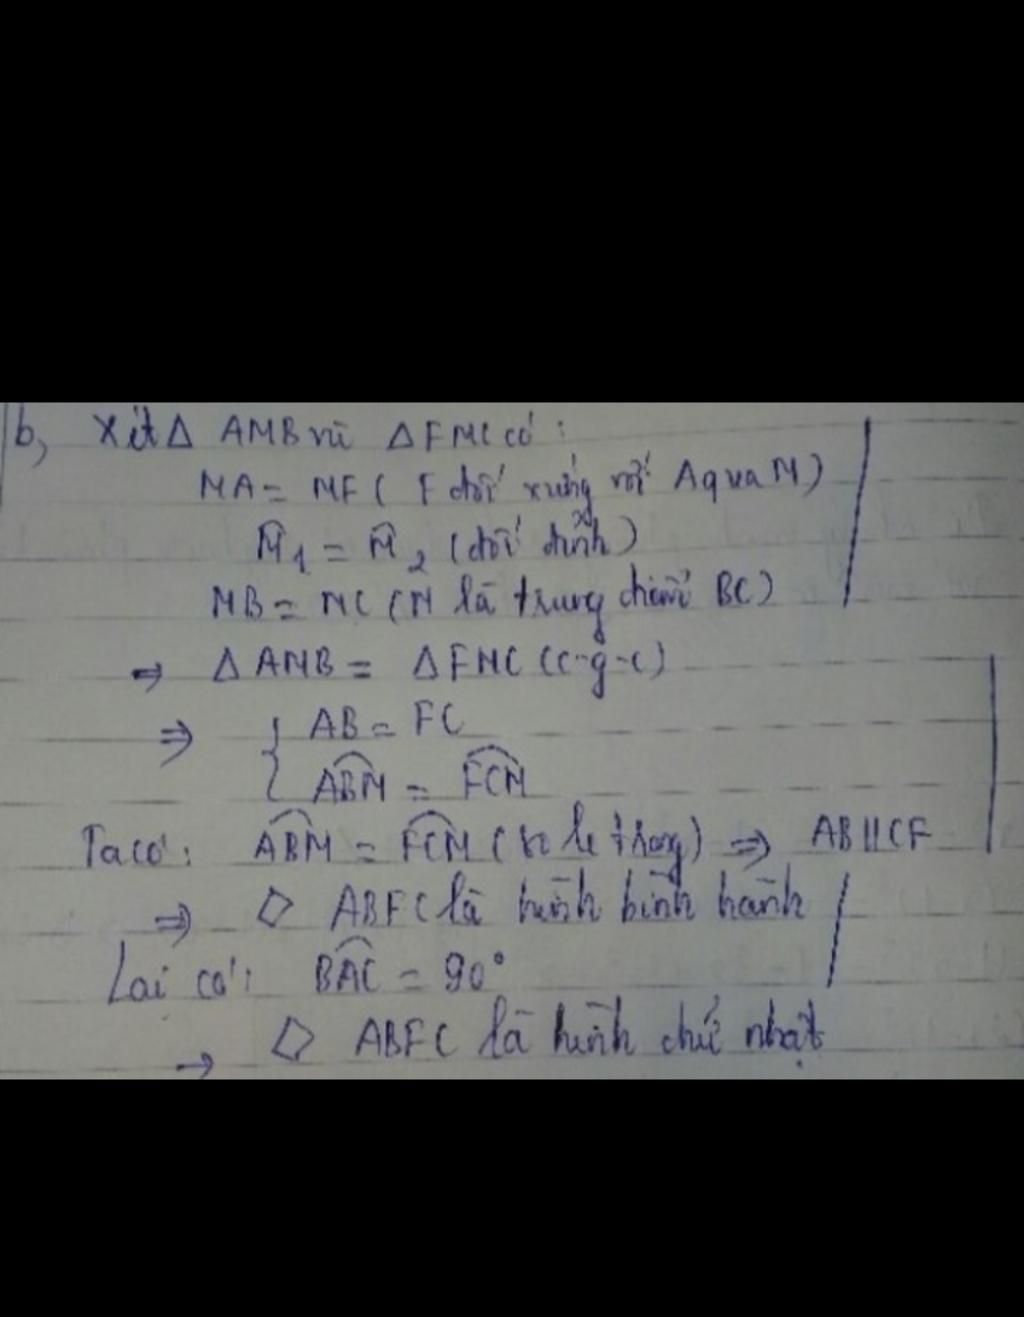 b, Xét Δ AMB và Δ FMC có :
MA = MF ( F đối xứng với A qua M )
M̂1 = M̂2 (đối đỉnh)
MB = MC (M là trung điểm BC)
⇒ Δ AMB = Δ FMC (c-g-c)
⇒ { AB = FC
ABM = FCM
Ta có : ABM = FCM ( so le trong ) ⇒ AB // CF
⇒ ▱ ABFC là hình bình hành
Lại có : BAC = 90°
→ ▱ ABFC là hình chữ nhật